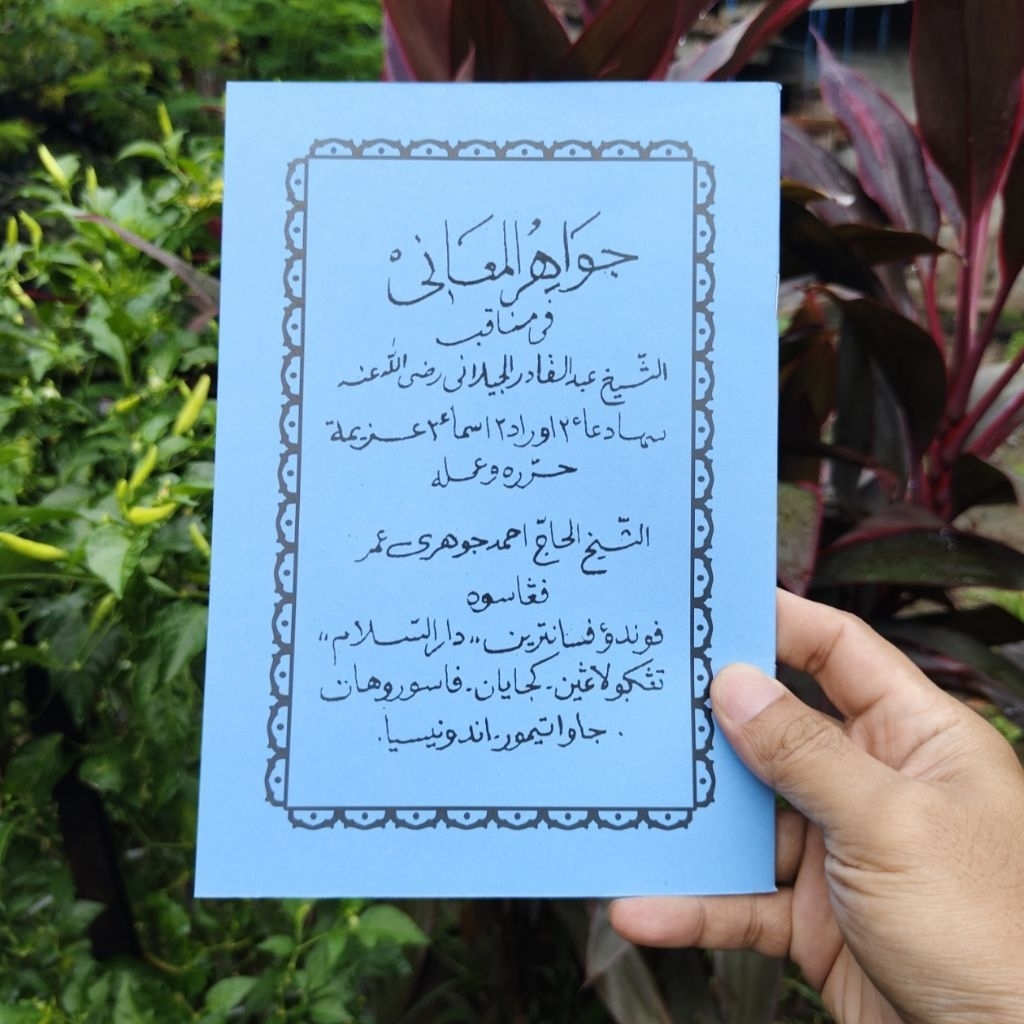 جَوَاهِرُ الْمَعَانِىْ
فى مناقب
الشّيخ عبد القادر الجيلانى رضى اللّٰه عنه
سيمادعاء٢ اوراد٢ اسماء٢ عزيمة
حرّره وعمله
الشّيخ الحاجّ احمد جوهرى عمر
فڠاسوه
فوندوء فسانترين ,,دار السّلام,,
تڠكولاڠين - كجايان - فاسوروهان
. جاوا تيمور - اندونيسيا .